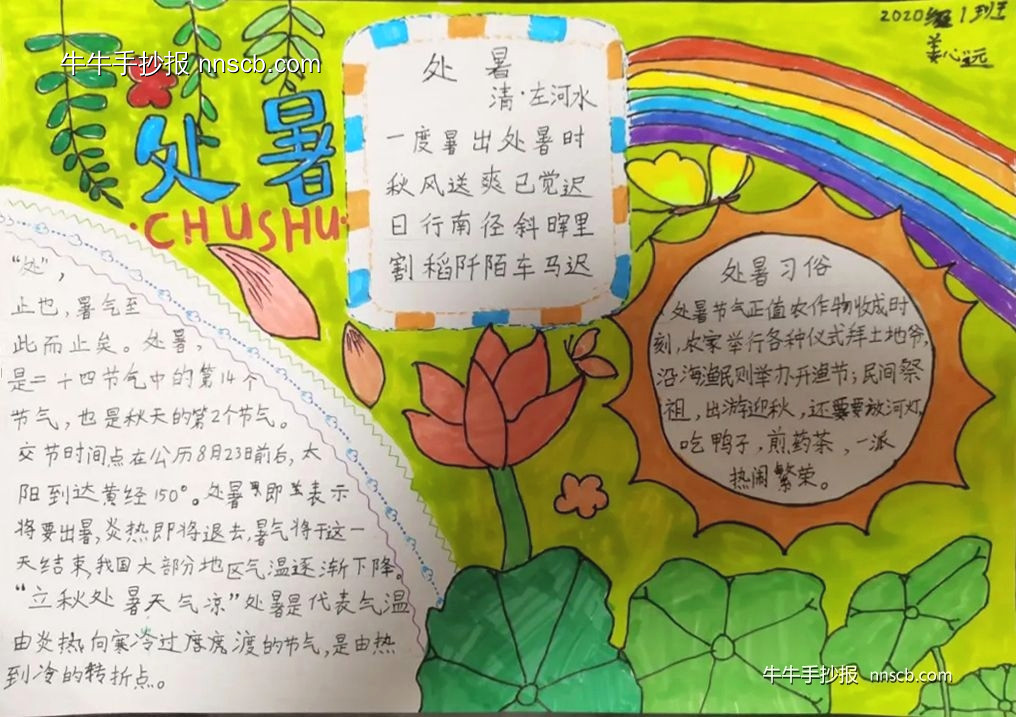 2020级1班
姜心远
牛牛手抄报 nnscb.com
处暑
CHUSHU
处暑
清·左河水
一度暑出处暑时
秋风送爽已觉迟
日行南径斜晖里
割稻阡陌车马迟
“处”，
止也，暑气至
此而止矣。处暑，
是二十四节气中的第14个
节气，也是秋天的第2个节气。
交节时间点在公历8月23日前后，太
阳到达黄经150°。处暑即表示
将要出暑，炎热即将退去，暑气将于这一
天结束，我国大部分地区气温逐渐下降。
“立秋处暑天气凉”处暑是代表气温
由炎热向寒冷过度渡的节气，是由热
到冷的转折点。
处暑习俗
处暑节气正值农作物收成时
刻，农家举行各种仪式拜土地爷，
沿海渔民则举办开渔节；民间祭
祖，出游迎秋，还要要放河灯，
吃鸭子，煎药茶，一派
热闹繁荣。
牛牛手抄报 nnscb.com